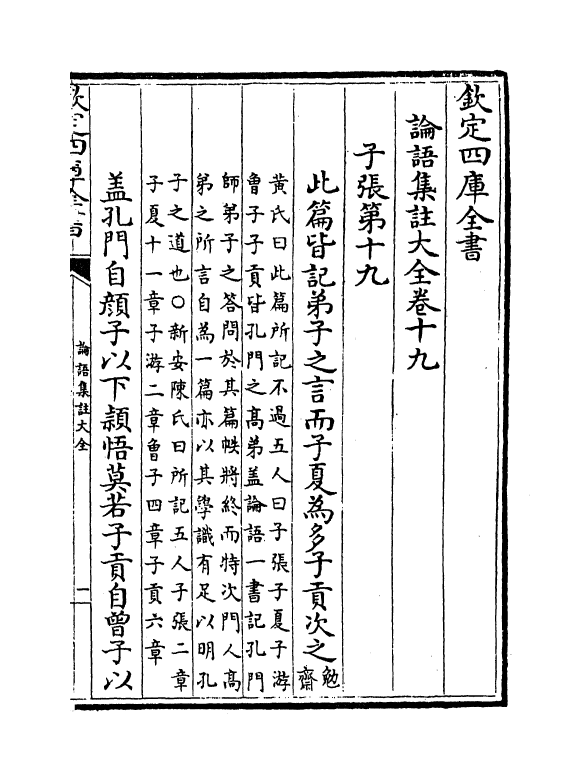 欽定四庫全書
論語集註大全卷十九
子張第十九
此篇皆記弟子之言而子夏為多子貢次之勉齋
黄氏曰此篇所記不過五人曰子張子夏子游
曾子子貢皆孔門之髙弟盖論語一書記孔門
師弟子之答問於其篇帙將終而特次門人髙
弟之所言自為一篇亦以其學識有足以明孔
子之道也○新安陳氏曰所記五人子張二章
子夏十一章子游二章曾子四章子貢六章
盖孔門自顔子以下頴悟莫若子貢自曾子以
欽定四庫全書
論語集註大全